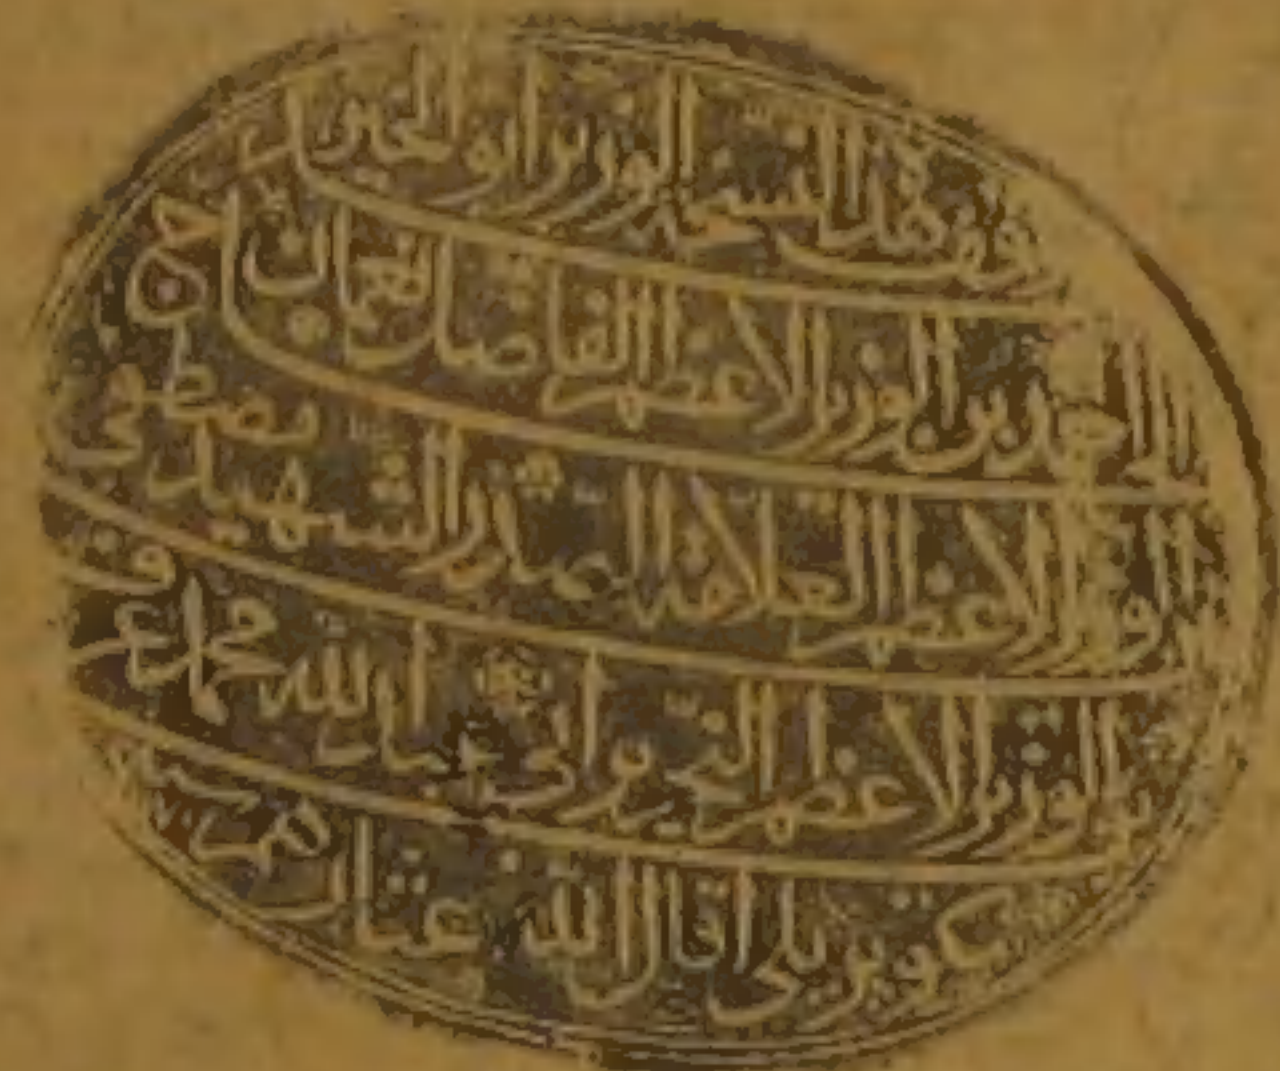 وقف هذا النسخة الوزير ابو الخير الحاج
احمد بن الوزير الاعظم الفاضل نعمان بن
الوزير الاعظم العلامة الصدر الشهيد مصطفى
بن الوزير الاعظم النحرير ابى عبد الله محمد عرف
بكوپريلى اقال الله عثارهم